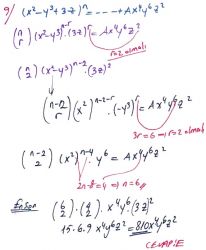 9) (x²-y³+3z)ⁿ = --- + Ax⁴y⁶z²
(n r) (x²-y³)ⁿ⁻ʳ.(3z)ʳ = Ax⁴y⁶z²
r=2 olmalı
(n 2) (x²-y³)ⁿ⁻².(3z)²
(n-2 r) (x²)ⁿ⁻²⁻ʳ.(-y³)ʳ = Ax⁴y⁶z²
3r=6 → r=2 olmalı
(n-2 2) (x²)ⁿ⁻⁴.y⁶ = Ax⁴y⁶z²
2n-8=4 → n=6
(6 2).(4 2).x⁴y⁶(3z)²
15.6.9 x⁴y⁶z² = 810x⁴y⁶z²